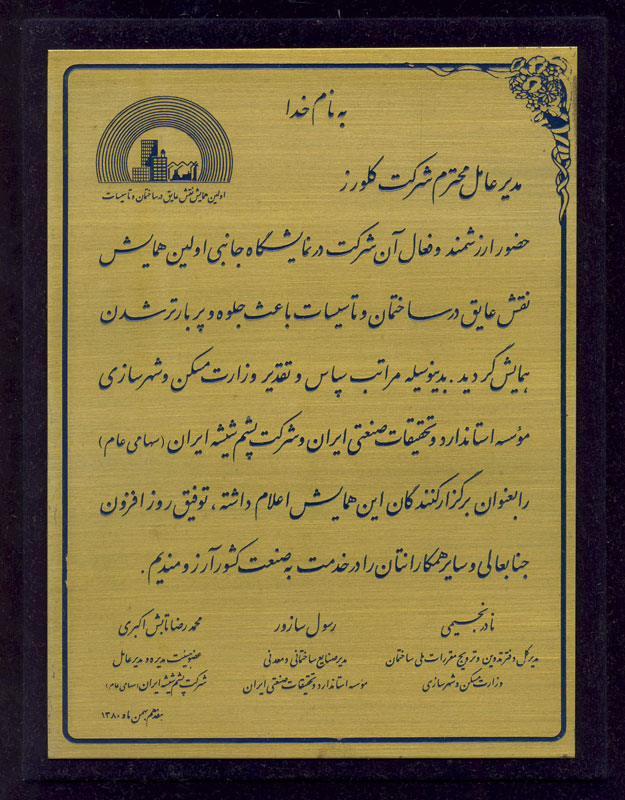 به نام خدا
اولین همایش نقش عایق در ساختمان و تاسیسات
مدیر عامل محترم شرکت کلورز
حضور ارزشمند و فعال آن شرکت در نمایشگاه جانبی اولین همایش
نقش عایق در ساختمان و تاسیسات باعث جلوه و پربارتر شدن
همایش گردید. بدینوسیله مراتب سپاس و تقدیر وزارت مسکن و شهرسازی
مؤسسه استاندارد و تحقیقات صنعتی ایران و شرکت پشم شیشه ایران (سهامی عام)
را بعنوان برگزارکنندگان این همایش اعلام داشته، توفیق روزافزون
جنابعالی و سایر همکارانتان را در خدمت به صنعت کشور آرزومندیم.
نادر نجیمی
مدیرکل دفتر تدوین و ترویج مقررات ملی ساختمان
وزارت مسکن و شهرسازی
رسول سازور
مدیر صنایع ساختمانی و معدنی
مؤسسه استاندارد و تحقیقات صنعتی ایران
محمدرضا تابش اکبری
عضو هیئت مدیره و مدیر عامل
شرکت پشم شیشه ایران (سهامی عام)
هفدهم بهمن ماه ۱۳۸۰